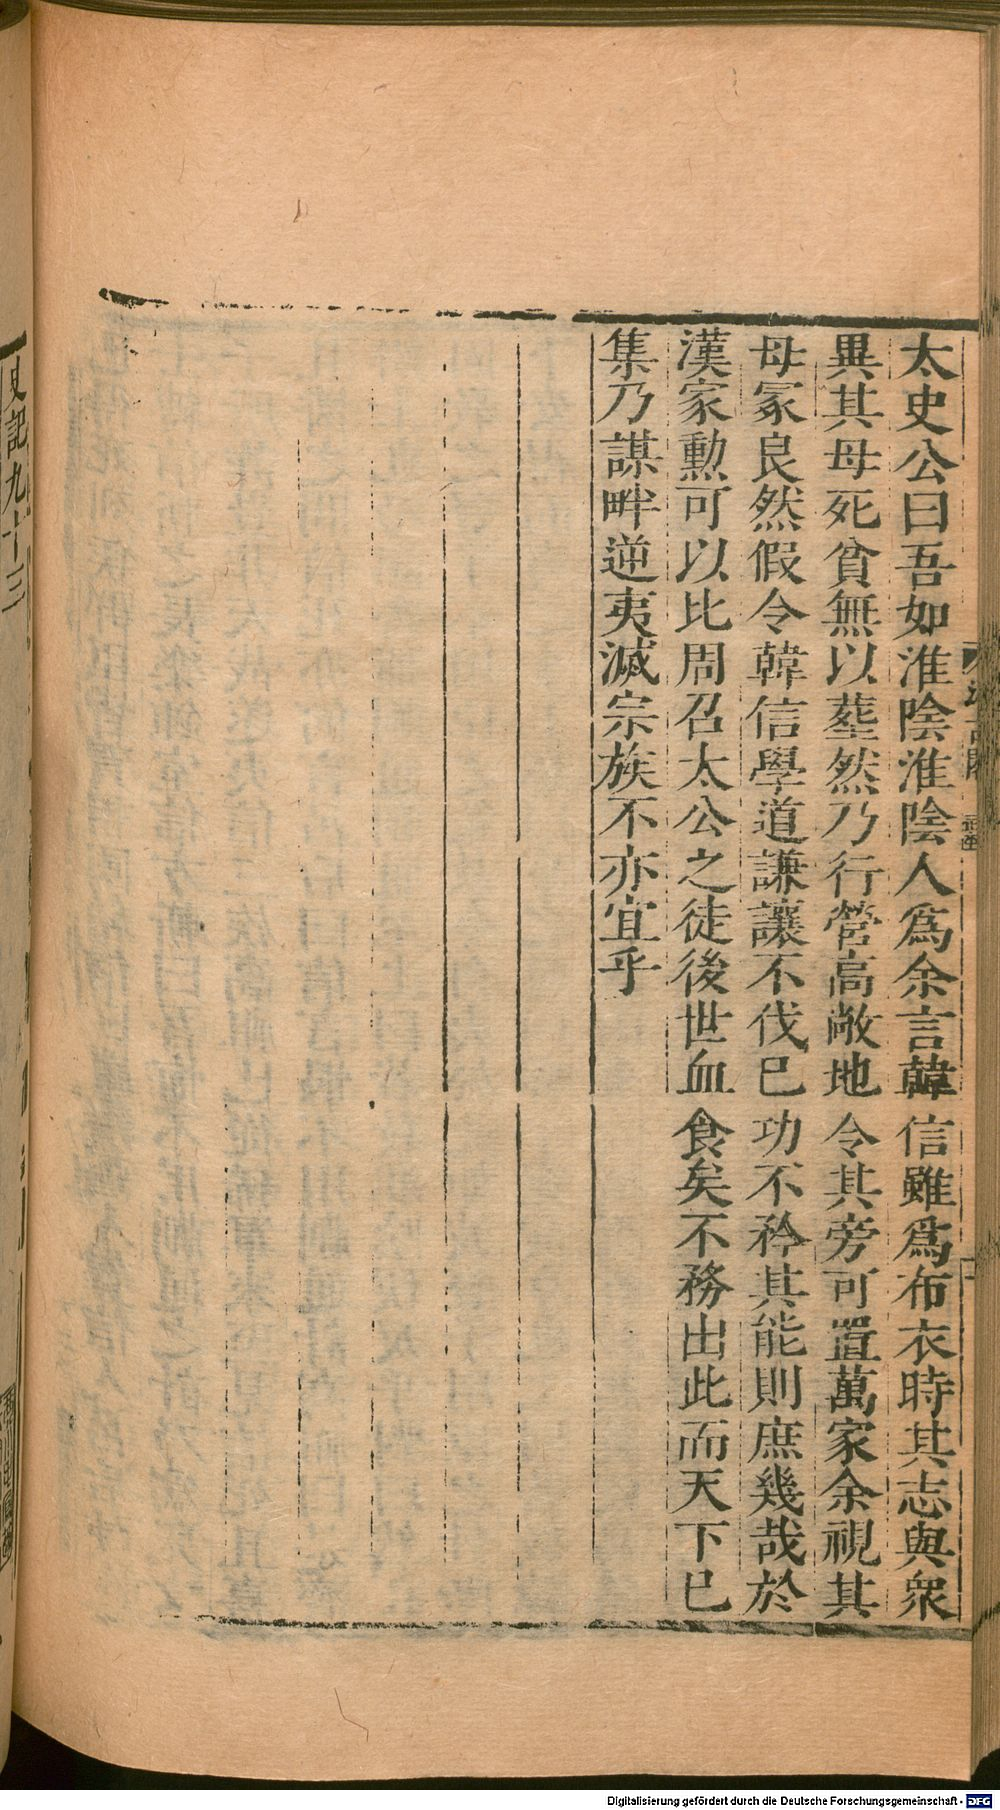 太史公曰吾如淮陰淮陰人爲余言韓信雖爲布衣時其志與衆
異其母死貧無以塟然乃行營高敞地令其旁可置萬家余視其
母冢良然假令韓信學道謙讓不伐已功不矜其能則庶幾哉於
漢家勲可以比周召太公之徒後世血食矣不務出此而天下已
集乃謀畔逆夷滅宗族不亦宜乎
史記九十三
Digitalisierung gefördert durch die Deutsche Forschungsgemeinschaft - DFG